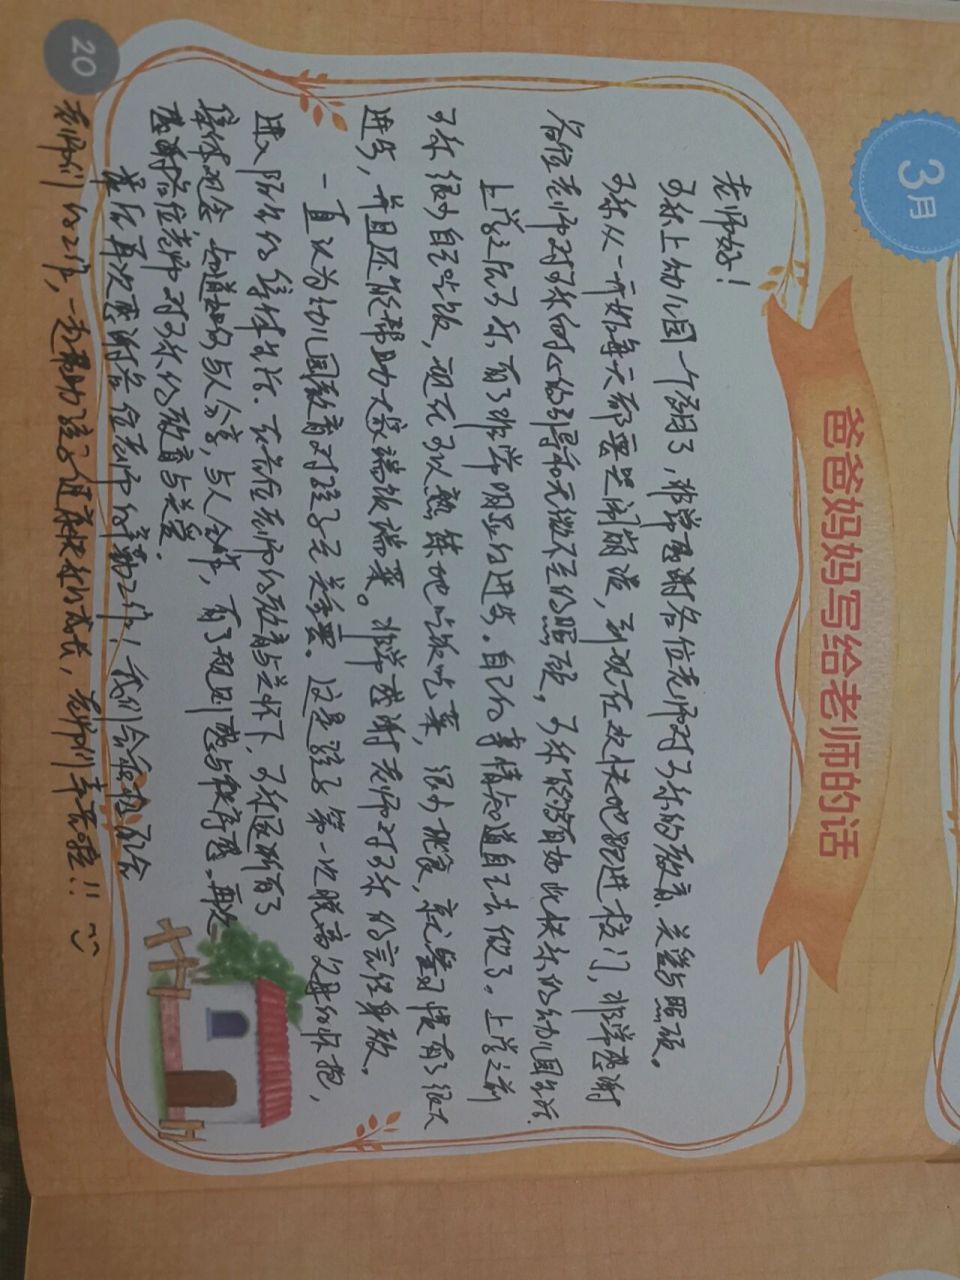 3月
爸爸妈妈写给老师的话
老师好!
子乐上幼儿园一个学期了,非常感谢各位老师对子乐的教育、关爱与照顾。
子乐从一开始每天都要哭闹崩溃,到现在欢快地跑进校门,非常感谢
各位老师对子乐的耐心的引导和无微不至的照顾,子乐能够有如此快乐的幼儿园生活.
上学之后子乐有了非常明显的进步。自己的事情知道自己去做了。上学之前
子乐很少自己吃饭,现在可以熟练地吃饭吃菜,很少挑食,就餐习惯有了很大
进步,并且还能帮助大家端饭端菜。非常感谢老师对子乐的言传身教。
一直认为幼儿园教育对孩子至关重要。这是孩子第一次脱离父母的怀抱,
进入陌生的集体生活.在各位老师的教育与关怀下,子乐逐渐有了
集体观念,知道如何与人分享,与人合作,有了规则感与秩序感。再次
感谢各位老师对子乐的教育与关爱。
最后再次感谢各位老师的辛勤工作!我们会积极配合
老师们的工作,一起帮助孩子健康快乐的成长,老师们辛苦啦!!
20